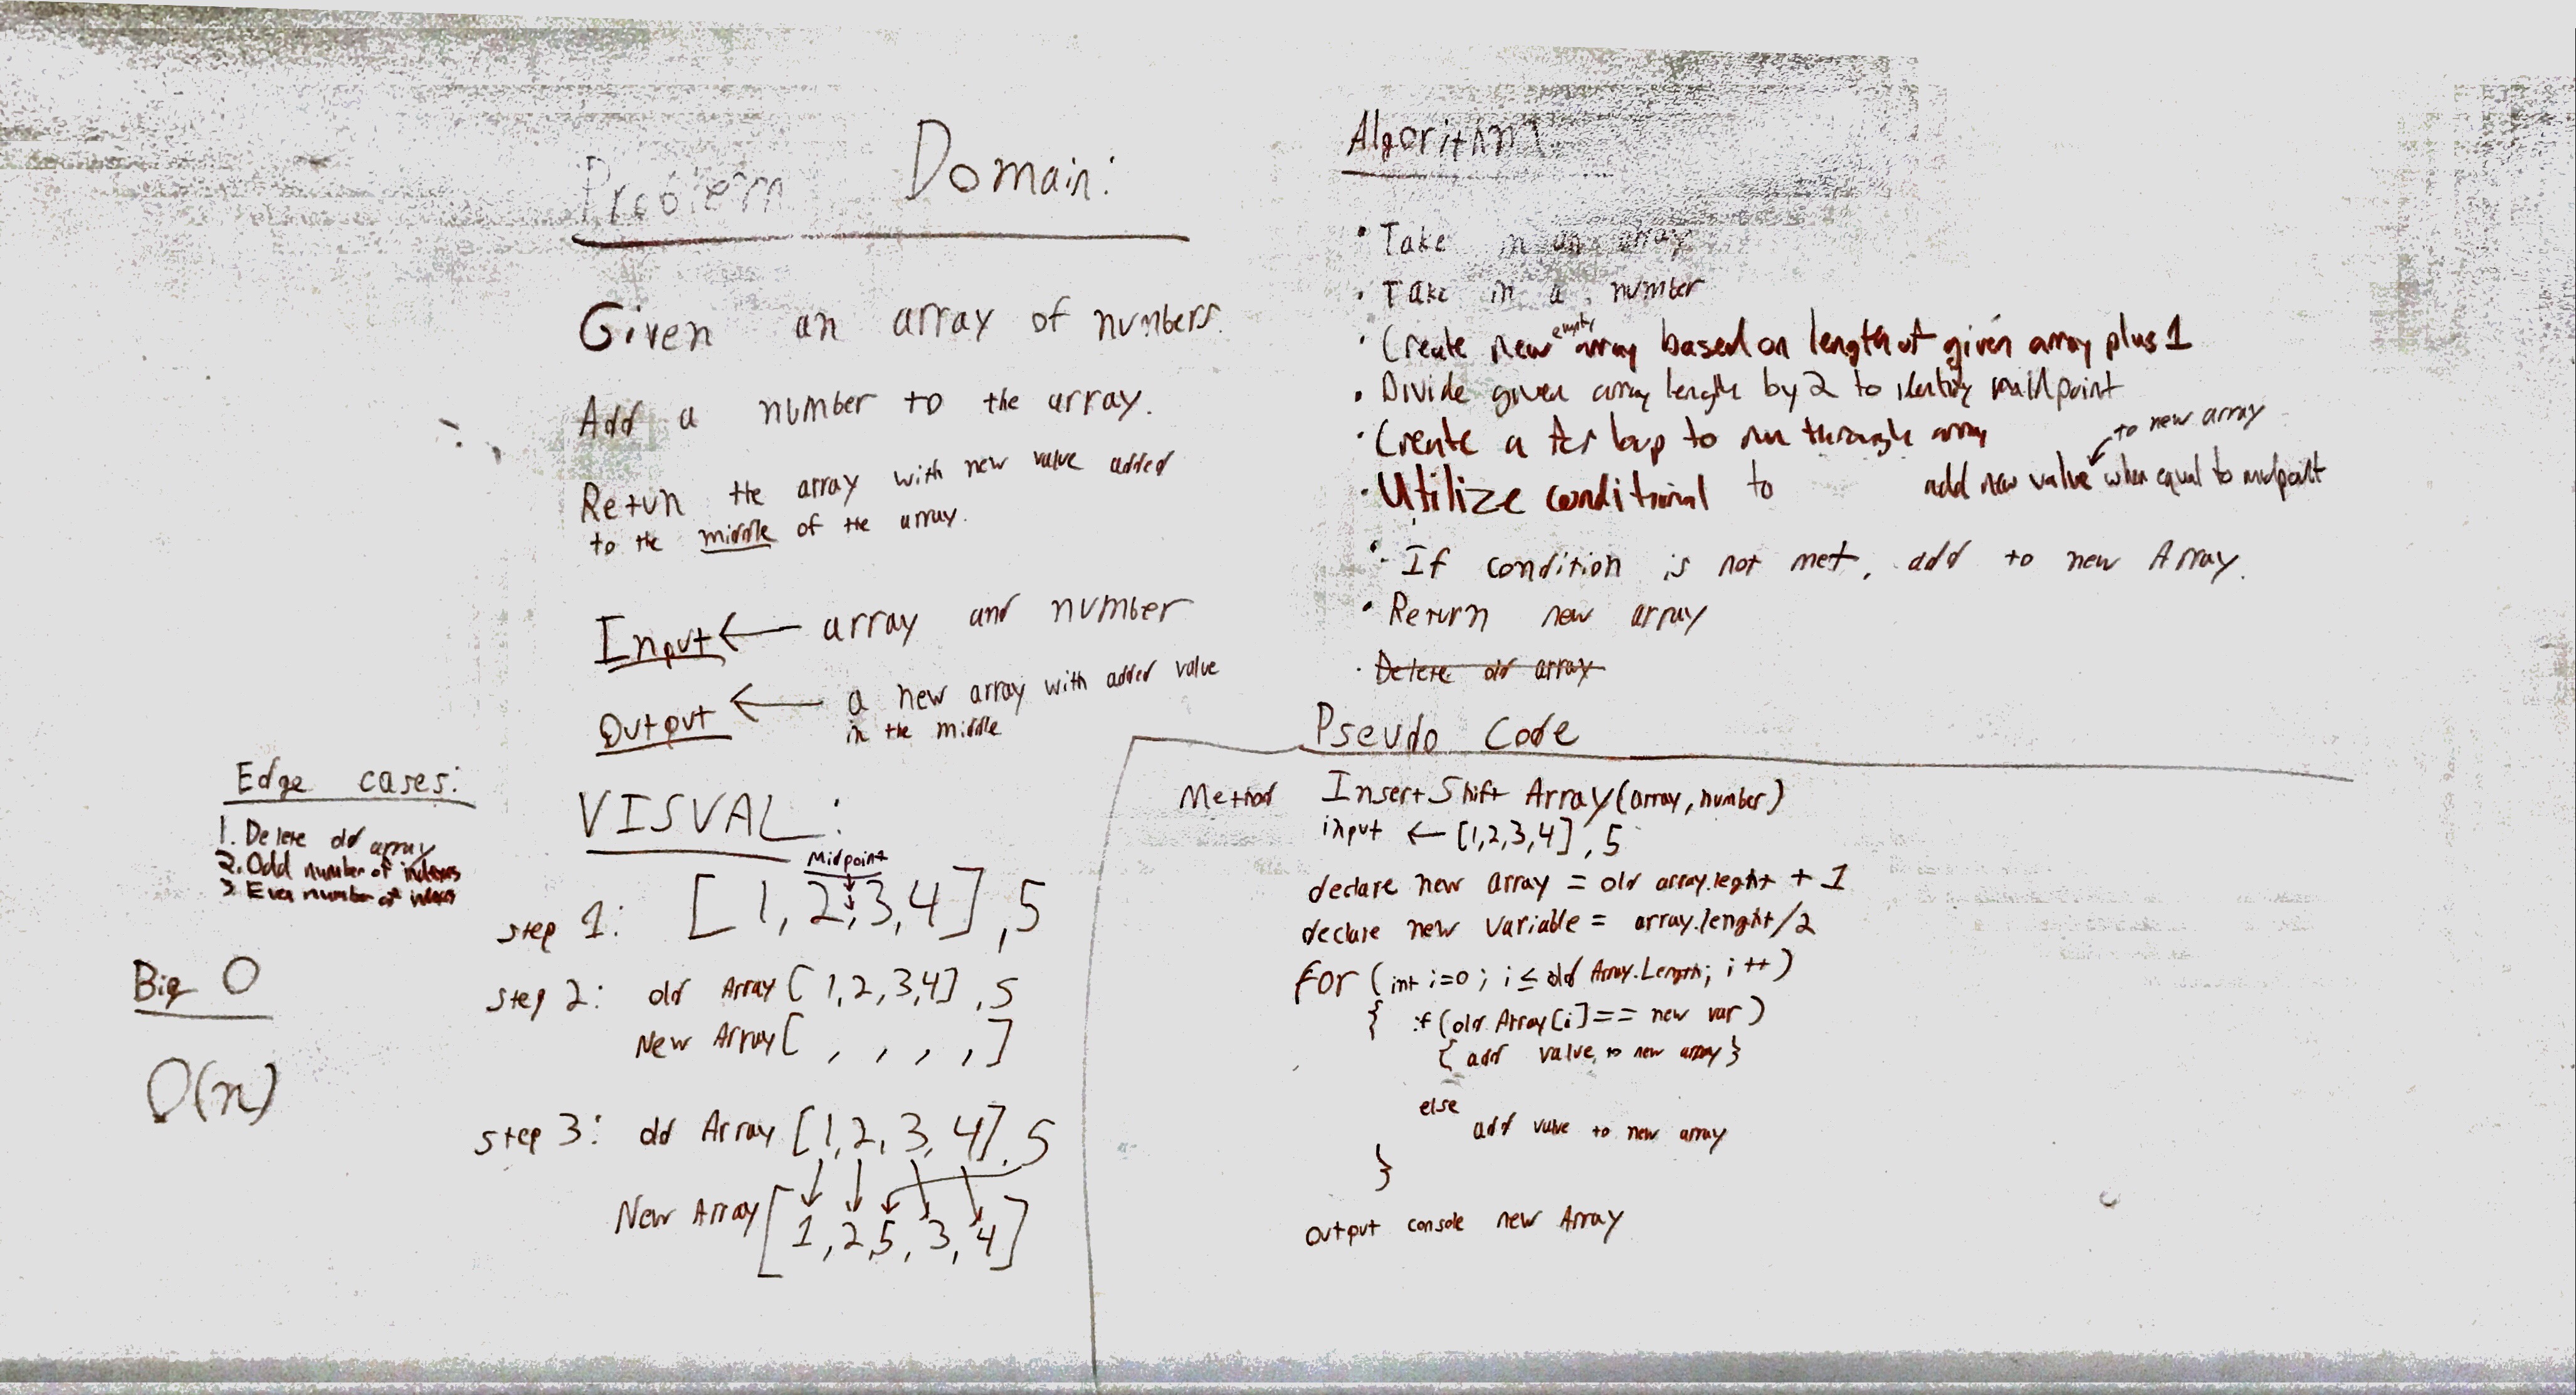 Problem Domain:
Given an array of numbers.
Add a number to the array.
Retun the array with new value added
to the middle of the array.
Input ← array and number
Output ← a new array with added value
in the middle
Edge cases:
1. Delete old array
2. Odd number of indexes
3. Even number of indexes
Big O
O(n)
VISUAL:
Midpoint
step 1: [1, 2, 3, 4], 5
step 2: old Array [1, 2, 3, 4], 5
New Array [ , , , , ]
step 3: old Array [1, 2, 3, 4], 5
New Array [1, 2, 5, 3, 4]
Algorithm
• Take in an array
• Take in a number
• Create new empty array based on length of given array plus 1
• Divide given array length by 2 to identify midpoint
• Create a for loop to run through array
to new array
• Utilize conditional to add new value when equal to midpoint
• - If condition is not met, add to new Array.
• Return new array
• Delete old array
Pseudo Code
Method Insert Shift Array(array, number)
input ← [1,2,3,4], 5
declare new array = old array.leght + 1
declare new variable = array.lenght/2
for (int i=0; i ≤ old Array.Length; i++)
{ if (old Array[i] == new var)
{ add value to new array }
else
add value to new array
}
output console new Array